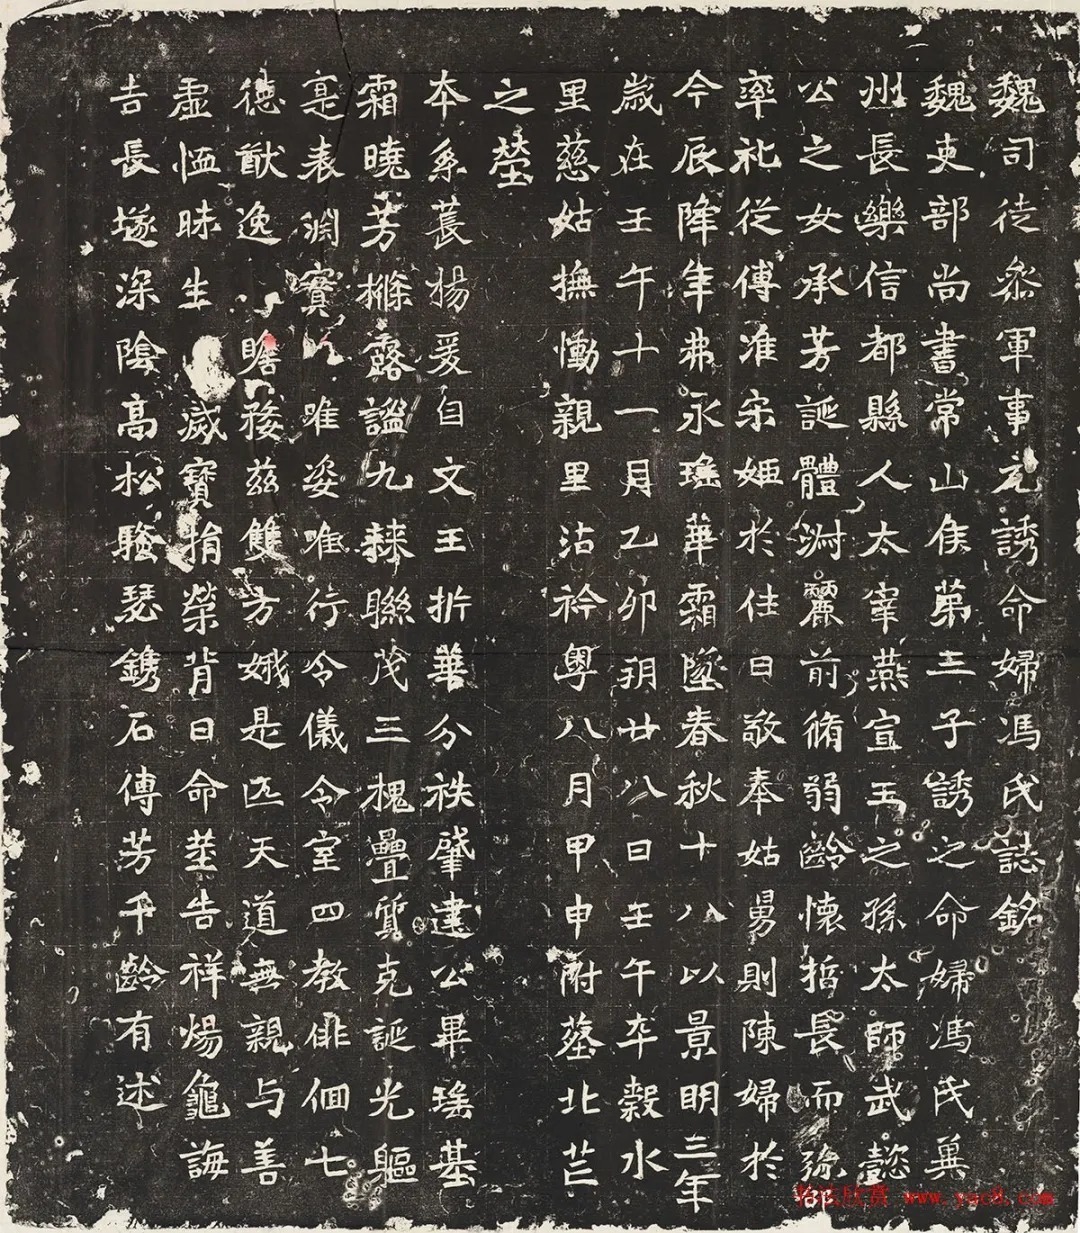 魏司徒參軍事元誘命婦馮氏誌銘
魏吏部尚書常山侯第三子誘之命婦馮氏冀
州長樂信都縣人太宰燕宣王之孫太師武懿
公之女承芳誕體淵麗前脩弱齡懷哲長而弥
率礼從傅准宋姬於往日敬奉姑舅則陳婦於
今辰降年弗永瑤華霜墜春秋十八以景明三年
歲在壬午十一月乙卯朔廿八日壬午卒穀水
里慈姑撫慟親里沾衿粵八月甲申附葬北芒
之塋
本系萇楊爰自文王折華分袟肇建公畢瑤基
霜曉芳樤露謐九棘聯茂三槐疊質克誕光軀
寔表淵寶 唯姿唯行令儀令室四教俳佪七
德猷逸 瞻 茲雙方娥是匹天道無親与善
虛恤昧生 滅寶捐榮背日命莖告祥煬龜誨
吉長埏深陰高松騷瑟鐫石傳芳千齡有述
书法欣赏 www.yac8.com